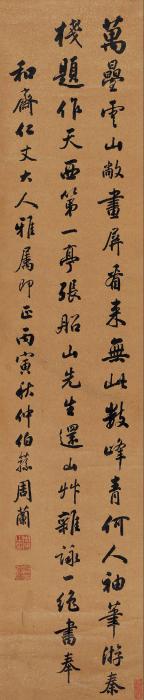 萬疊雲山敞畫屏看來無此數峰青何人袖筆游秦
棧題作天西第一亭張船山先生還山艸雜詠一絕書奉
和齋仁丈大人雅属即正丙寅秋仲伯蓀周蘭